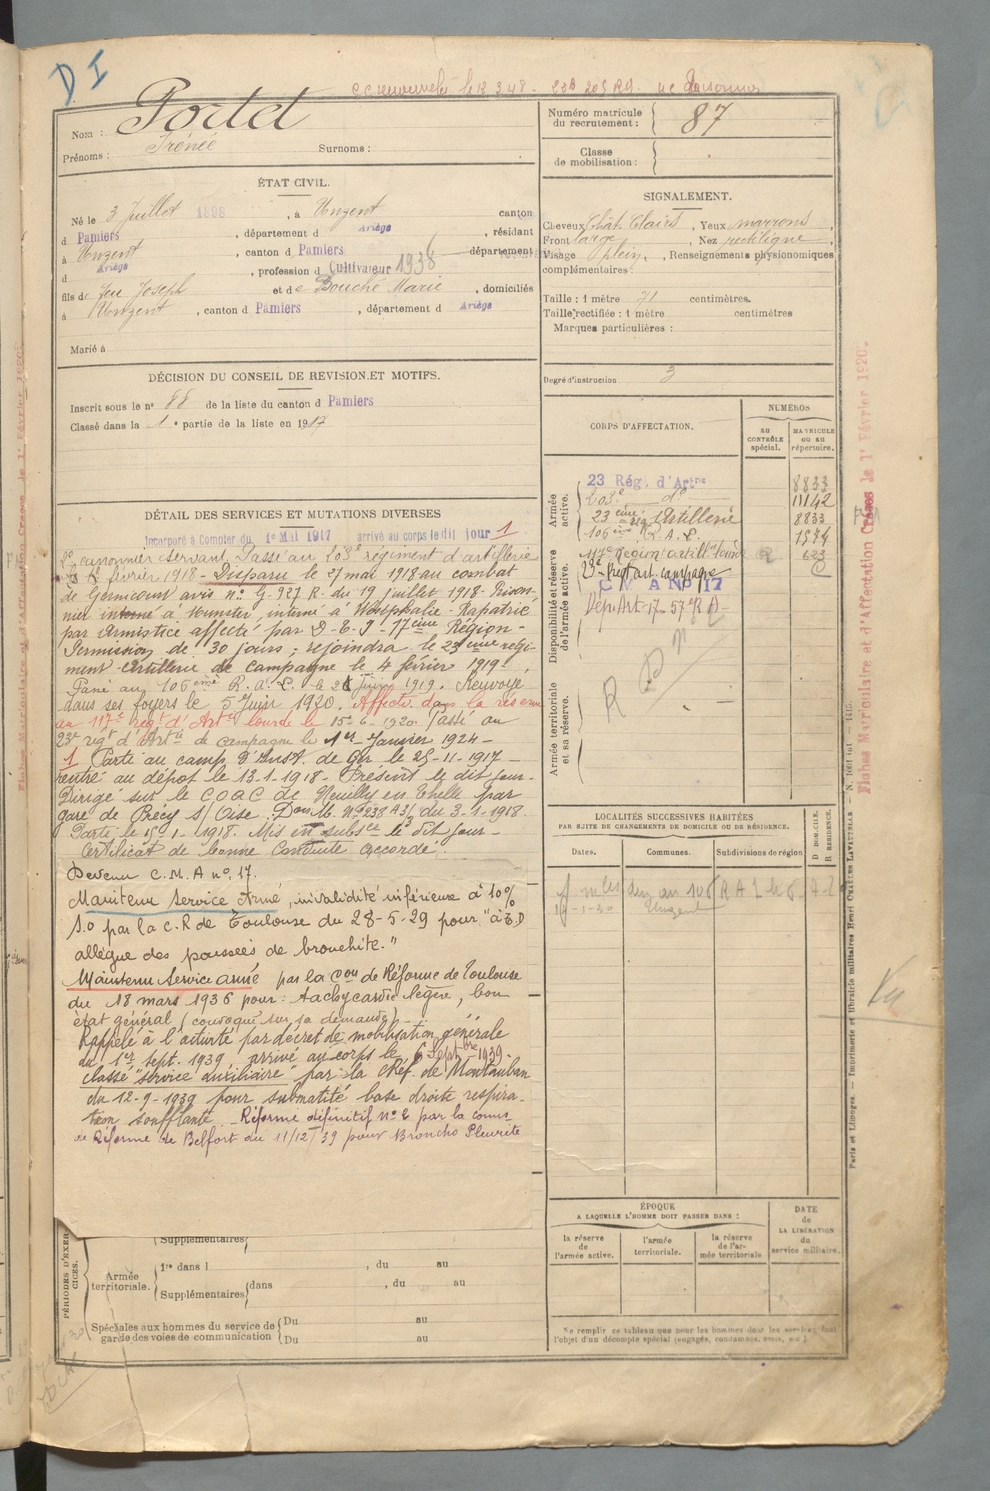 D I
Nom : Portet
Prénoms : Irénée Surnoms :
ÉTAT CIVIL.
Né le 3 Juillet 1898, à Unzent canton
d Pamiers, département d Ariège, résidant
à Unzent, canton d Pamiers département
d Ariège, profession d Cultivateur 1936
fils de feu Joseph et de Bouche Marie, domiciliés
à Unzent, canton d Pamiers, département d Ariège
Marié à
DÉCISION DU CONSEIL DE REVISION ET MOTIFS.
Inscrit sous le n° 88 de la liste du canton d Pamiers
Classé dans la 1e partie de la liste en 1917
DÉTAIL DES SERVICES ET MUTATIONS DIVERSES
Incorporé à Compter du 1e Mai 1917 arrivé au corps le dit jour 1
2e canonnier servant. Passé au 203e régiment d'artillerie
février 1918 - Disparu le 27 mai 1918 au combat
de Gernicourt avis n° G-927 R. du 19 juillet 1918. Prison-
nier interné à Munster, interné à Westphalie - Rapatrié
par Armistice affecté par D-E-I-17ème Région -
Permission de 30 jours ; rejoindra le 23ème régi-
ment Artillerie de campagne le 4 février 1919.
Passé au 106ème R.A.L. le 1919. Renvoyé
dans ses foyers le 5 Juin 1920. Affecté dans la réserve
au 117e régt d'Art. lourde le 15-6-1920 Passé au
23e régt d'Artie de campagne le 1er Janvier 1924 -
1 Parti au camp d'Inst. de Ger le 25-11-1917 -
rentré au dépot le 13-1-1918 - Présent le dit jour -
Dirigé sur le COAC de Neuilly en Thelle par
gare de Précy s/Oise. Don M. N° 238 A 3/3 du 3-1-1918
Parti le 15-1-1918. Mis en subsce le dit jour -
Certificat de bonne Conduite accordé.
Devenu C.M.A n° 17.
Maintenu Service Armé, invalidité inférieure à 10%
S.O par la C.R de Toulouse du 28-5-29 pour "à E.D
allègue des poussées de bronchite."
Maintenu Service armé par la Con de Réforme de Toulouse
du 18 mars 1936 pour : tachycardie légère, bon
état général (convoqué sur sa demande) -
Rappelé à l'activité par décret de mobilisation générale
du 1er sept. 1939, arrivé au corps le 6 Septbre 1939.
classé "service auxiliaire" par la Cref. de Montauban
du 12-9-1939 pour submatité base droite respira-
tion soufflante. Réformé définitif n° 2 par la comon
de Réforme de Belfort du 11/12/39 pour Broncho Pleurite
PÉRIODES D'EXERCICES.
Supplémentaires
Armée territoriale. 1re dans l , du au
Supplémentaires dans , du au
Spéciales aux hommes du service de garde des voies de communication Du au
Du au
Numéro matricule du recrutement : 87
Classe de mobilisation :
SIGNALEMENT.
Cheveux Chât. Clairs, Yeux marrons
Front large, Nez rectiligne,
Visage plein, Renseignements physionomiques
complémentaires :
Taille : 1 mètre 71 centimètres.
Taille rectifiée : 1 mètre centimètres
Marques particulières :
Degré d'instruction 3
CORPS D'AFFECTATION.
NUMÉROS
AU CONTRÔLE spécial.
MATRICULE OU AU répertoire.
Armée active.
23 Rég. d'Artrie 8833
203e do 11142
23ème rég Artillerie 8833
106ème R.A.L. 1574
Disponibilité et réserve de l'armée active.
117e Région artill lourde 623
23e Regt art campagne
C M A No 17
Dépt Art - 17 - 57e R A -
Armée territoriale et sa réserve.
LOCALITÉS SUCCESSIVES HABITÉES
PAR SUITE DE CHANGEMENTS DE DOMICILE OU DE RÉSIDENCE.
Dates. Communes. Subdivisions de région D DOMICILE. R RÉSIDENCE.
Unzent
ÉPOQUE
A LAQUELLE L'HOMME DOIT PASSER DANS :
la réserve de l'armée active.
l'armée territoriale.
la réserve de l'armée territoriale
DATE de LA LIBÉRATION du service militaire.
Ne remplir ce tableau que pour les hommes dont les services font
l'objet d'un décompte spécial (engagés, condamnés, omis, etc.)
Paris et Limoges. — Imprimerie et librairie militaires Henri CHARLES-LAVAUZELLE
Fiches Matriculaire et d'Affectation Créées le 1er Février 1920.